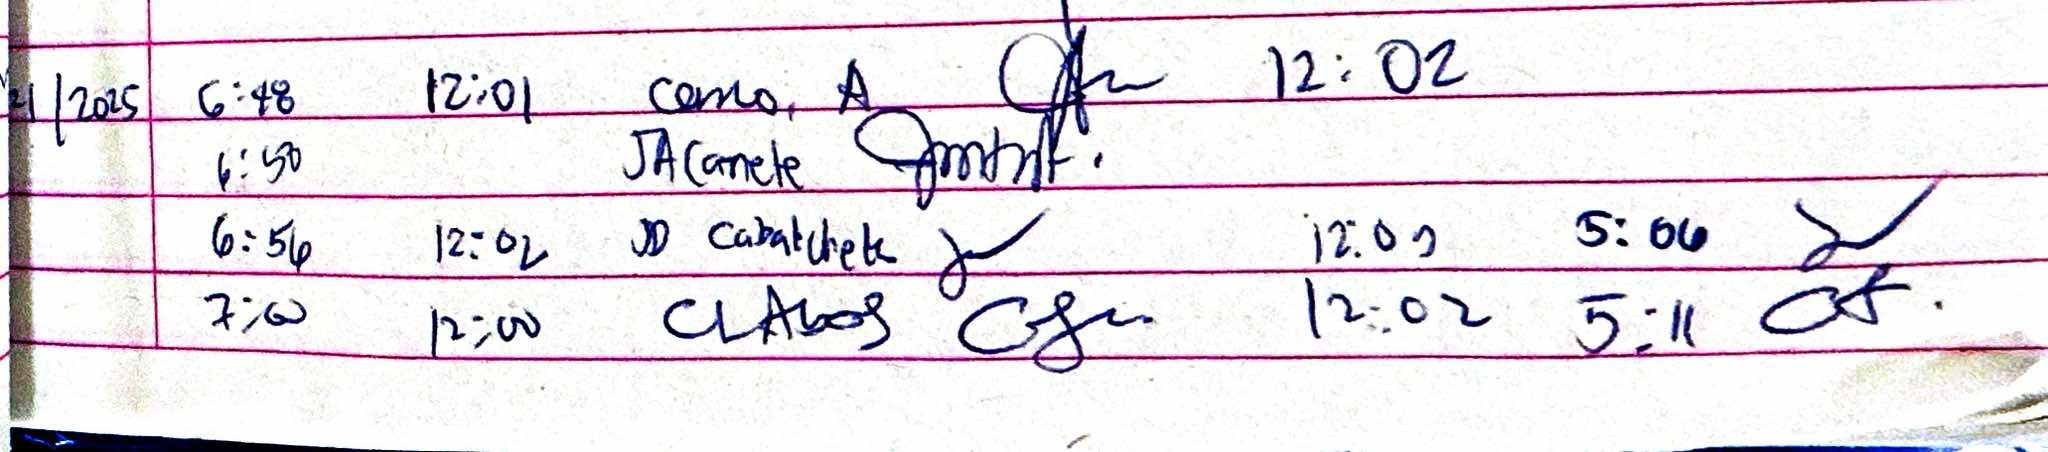 21/2025 6:48 12:01 A 12:02
6:50 JACanete
6:56 12:02 JD Cabatchete 12:03 5:06
7:00 12:00 CLAbos 12:02 5:11